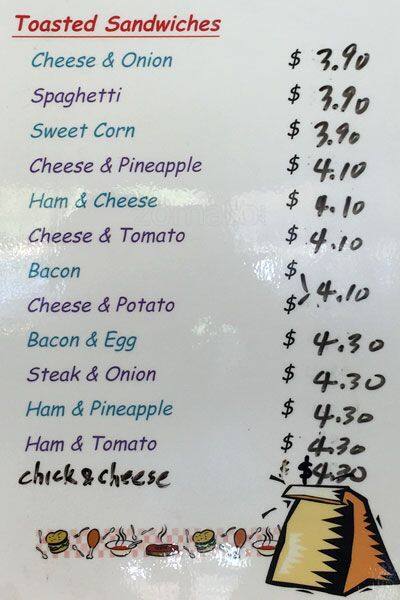 Toasted Sandwiches
Cheese & Onion $ 3.90
Spaghetti $ 3.90
Sweet Corn $ 3.90
Cheese & Pineapple $ 4.10
Ham & Cheese $ 4.10
Cheese & Tomato $ 4.10
Bacon $
Cheese & Potato $ 4.10
Bacon & Egg $ 4.30
Steak & Onion $ 4.30
Ham & Pineapple $ 4.30
Ham & Tomato $ 4.30
chick & cheese $ $4.30